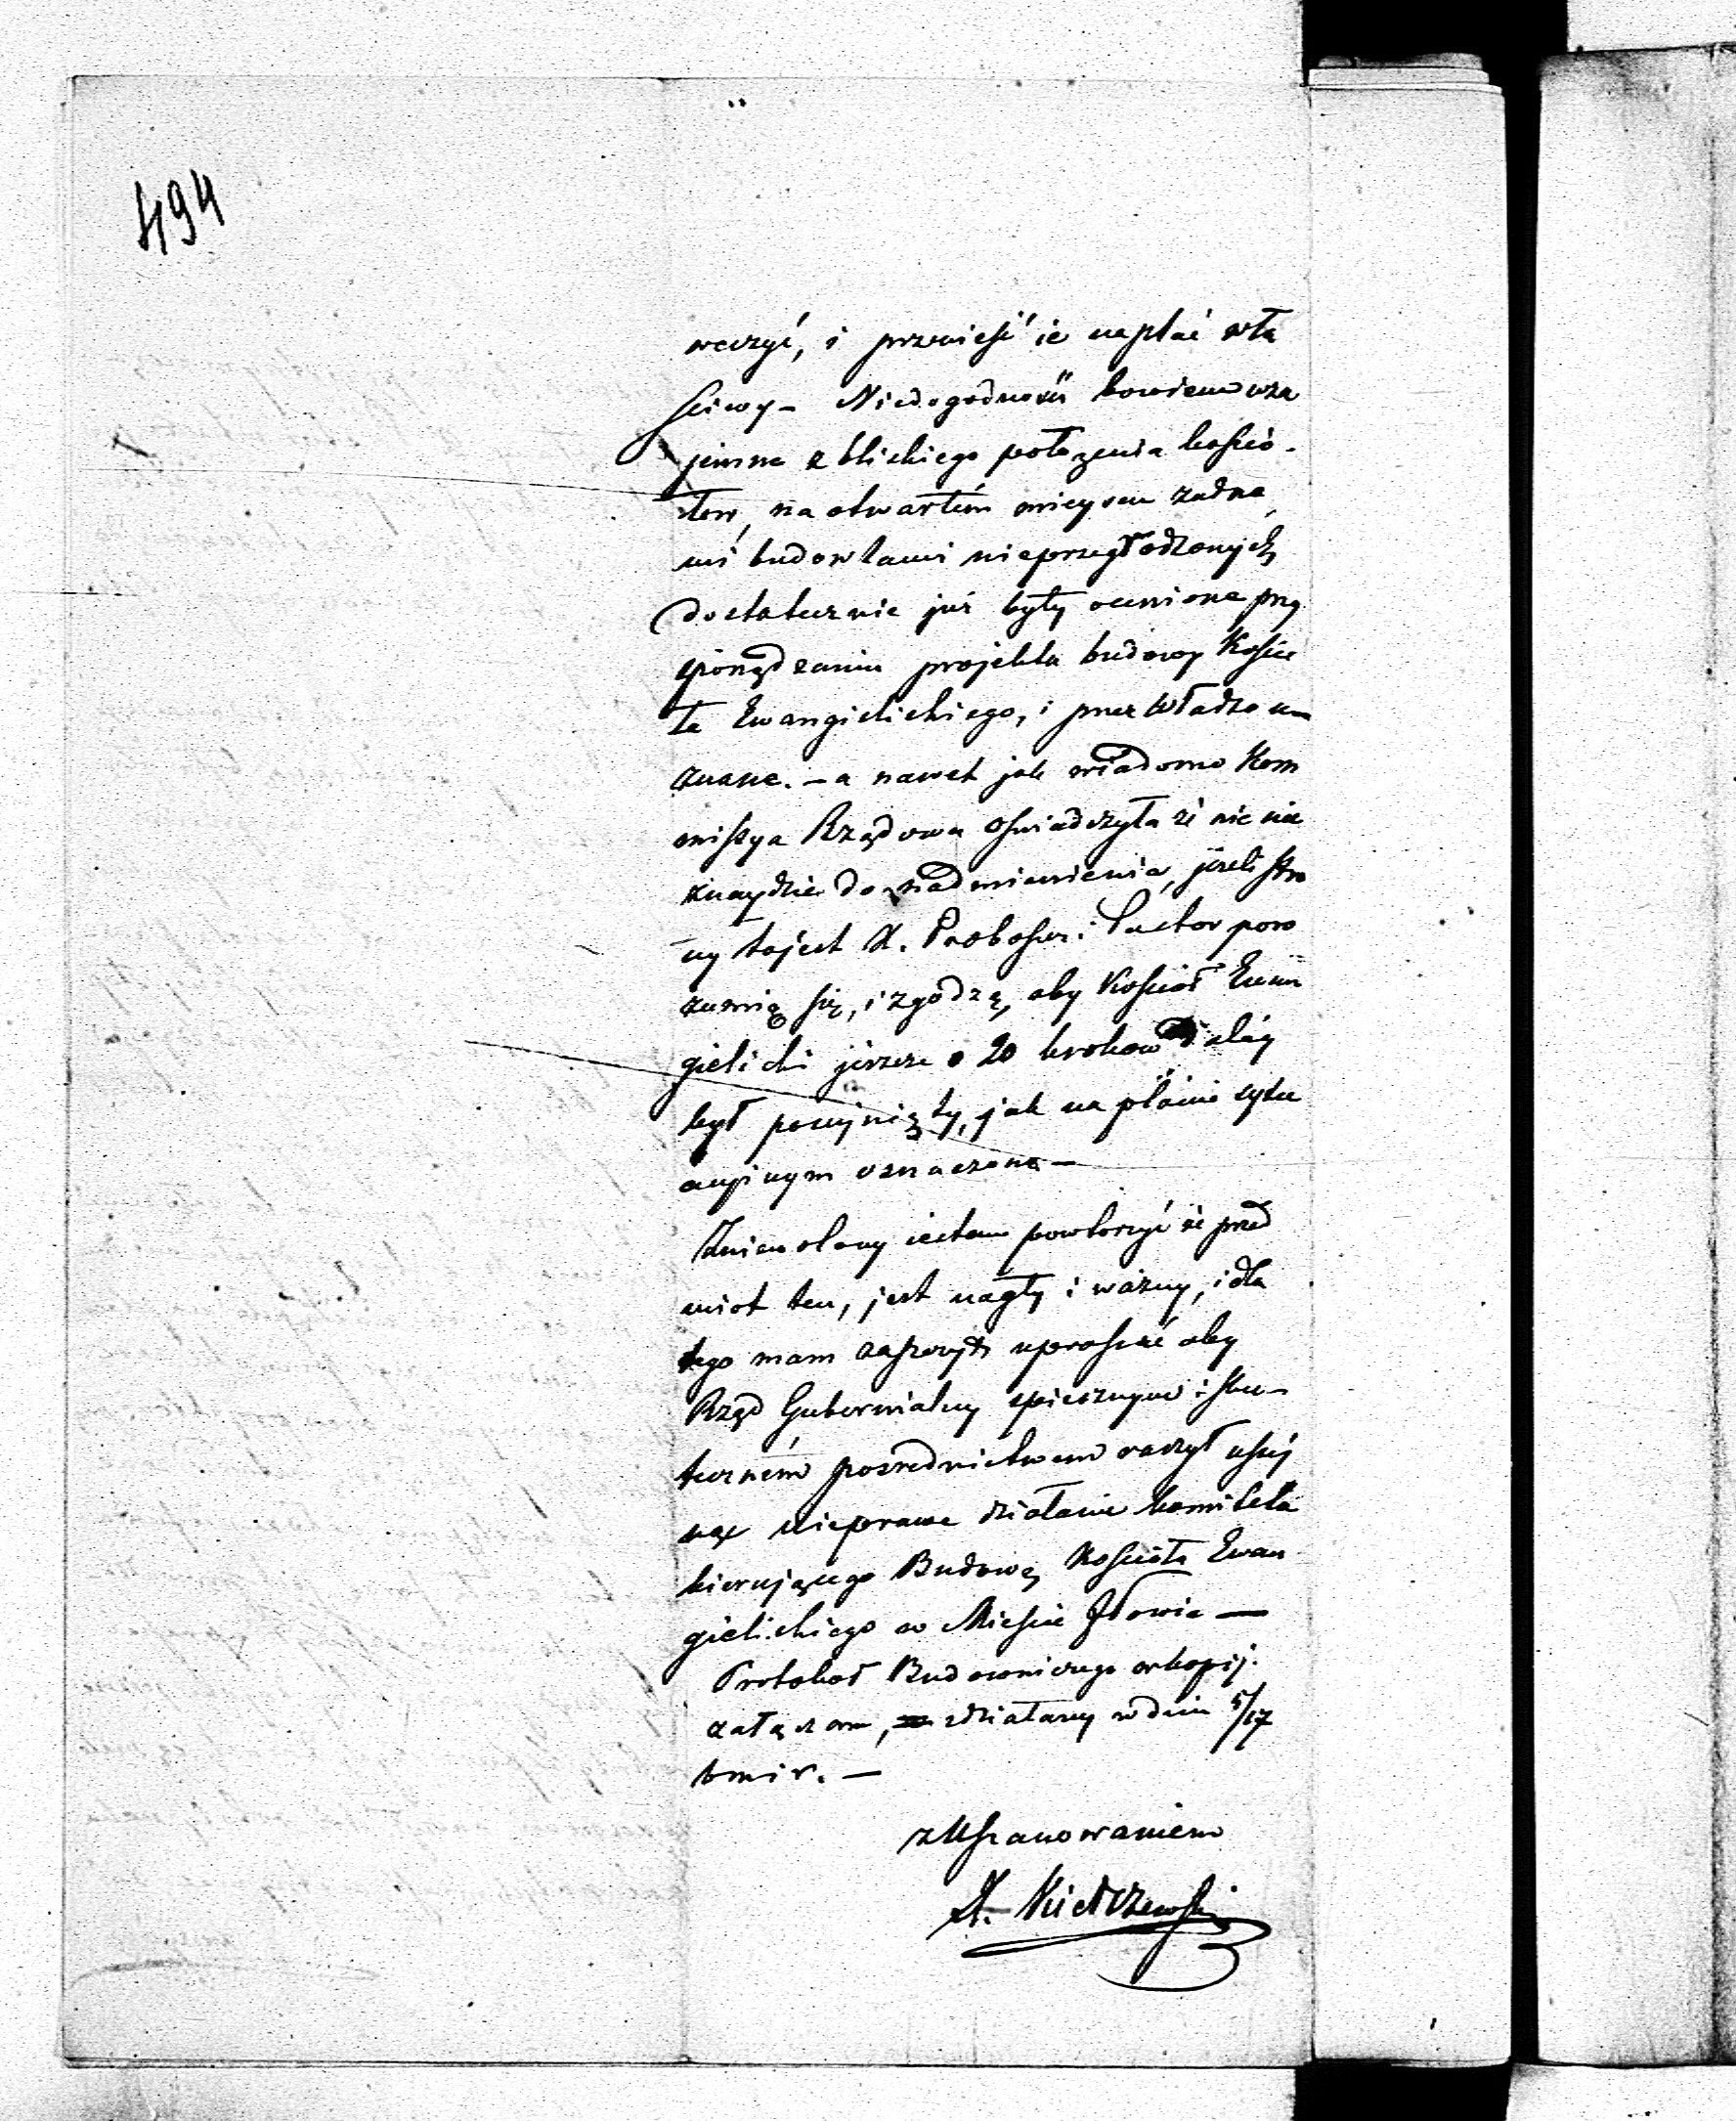 494
weczyć, i przenieść ie na plać wła
sciwy – Niedogodności bowiem wza
jemne z bliskiego położenia kościo-
łow, na otwartém mieyscu żadne
mi budowlami nieprzegrodzonych,
dostatecznie już były ocenione przy
sporządzaniu projektu budowy Koscio
ła Ewangielickiego, i przez Władze u–
znane. – a nawet jak wiadomo Kom
missya Rządowa oswiadczyła że nic nie
znaydzie do nadmienienia, jeżeli stro
ny to jest X. Proboszcz i Pastor poro
zumią się, i zgodzą, aby Kosciół Ewan
gielicki jeszcze o 20 krokow daléy
był posunięty, jak na planie sytu
acyjnym oznaczono –
Zniewolony iestem powtorzyć że przed
miot ten, jest nagły i ważny, i dla
tego mam zaszczyt uprosić aby
Rząd Gubernialny spiesznym i sku–
teczném posrednictwem raczył usu
nąć nieprawe działanie komitetu
kierującego Budową Kościoła Ewan
gielickiego w Miescie Iłowie —
Protokoł Budowniczego w kopij
załączam, zdziałany w dniu 5/17
b m i r. —
z Uszanowaniem
X. Kiełczewski